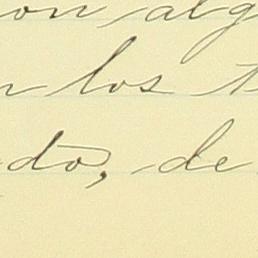 on alg
n los t
do, de